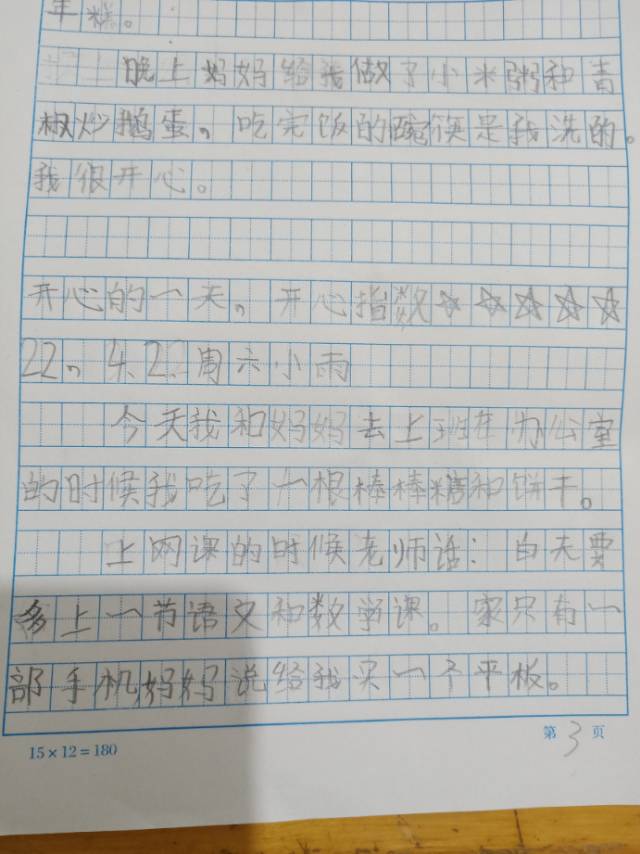 年糕。
晚上妈妈给我做了小米粥和青
椒炒鹅蛋。吃完饭的碗筷是我洗的。
我很开心。
开心的一天。开心指数☆☆☆☆☆
22。4.2.周六小雨
今天我和妈妈去上班在办公室
的时候我吃了一根棒棒糖和饼干。
上网课的时候老师话：白天要
多上一节语文和数学课。家只有一
部手机妈妈说给我买一个平板。
15×12=180
第3页